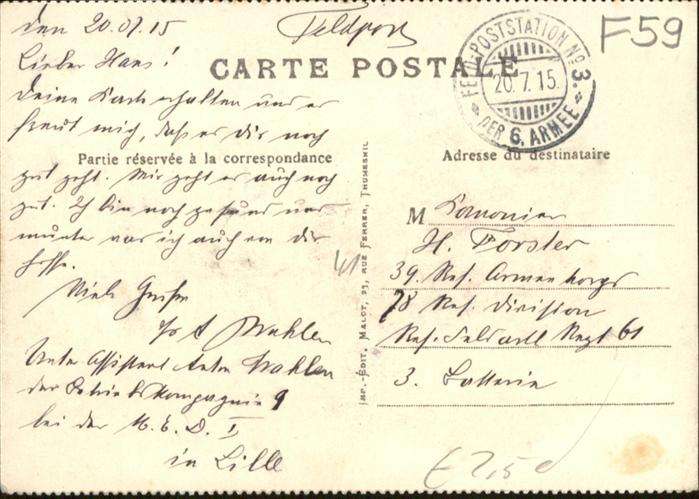 den 20.07.15
Feldpost
F59
Lieber Hans!
CARTE POSTALE
FELD-POSTSTATION No 3.
20.7.15.
DER 6. ARMEE
Deine Karte erhalten und es
freut mich, daß es dir noch
Partie réservée à la correspondance
Adresse du destinataire
gut geht. Mir geht es auch noch
gut. Ich bin noch gesund und
munter was ich auch von dir
hoffe.
41
Viele Grüße
A. Mahlen
Unter Assistent Anton Mahlen
der Betriebskompagnie 9
bei der M.E.D. I
in Lille
IMP.-EDIT. MALOT, 23, RUE FERRER, THUMESNIL
M Kanonier
H. Forster
39. Res. Armeekorps
78 Res. Division
Res. Feldartl Regt 61
3. Batterie